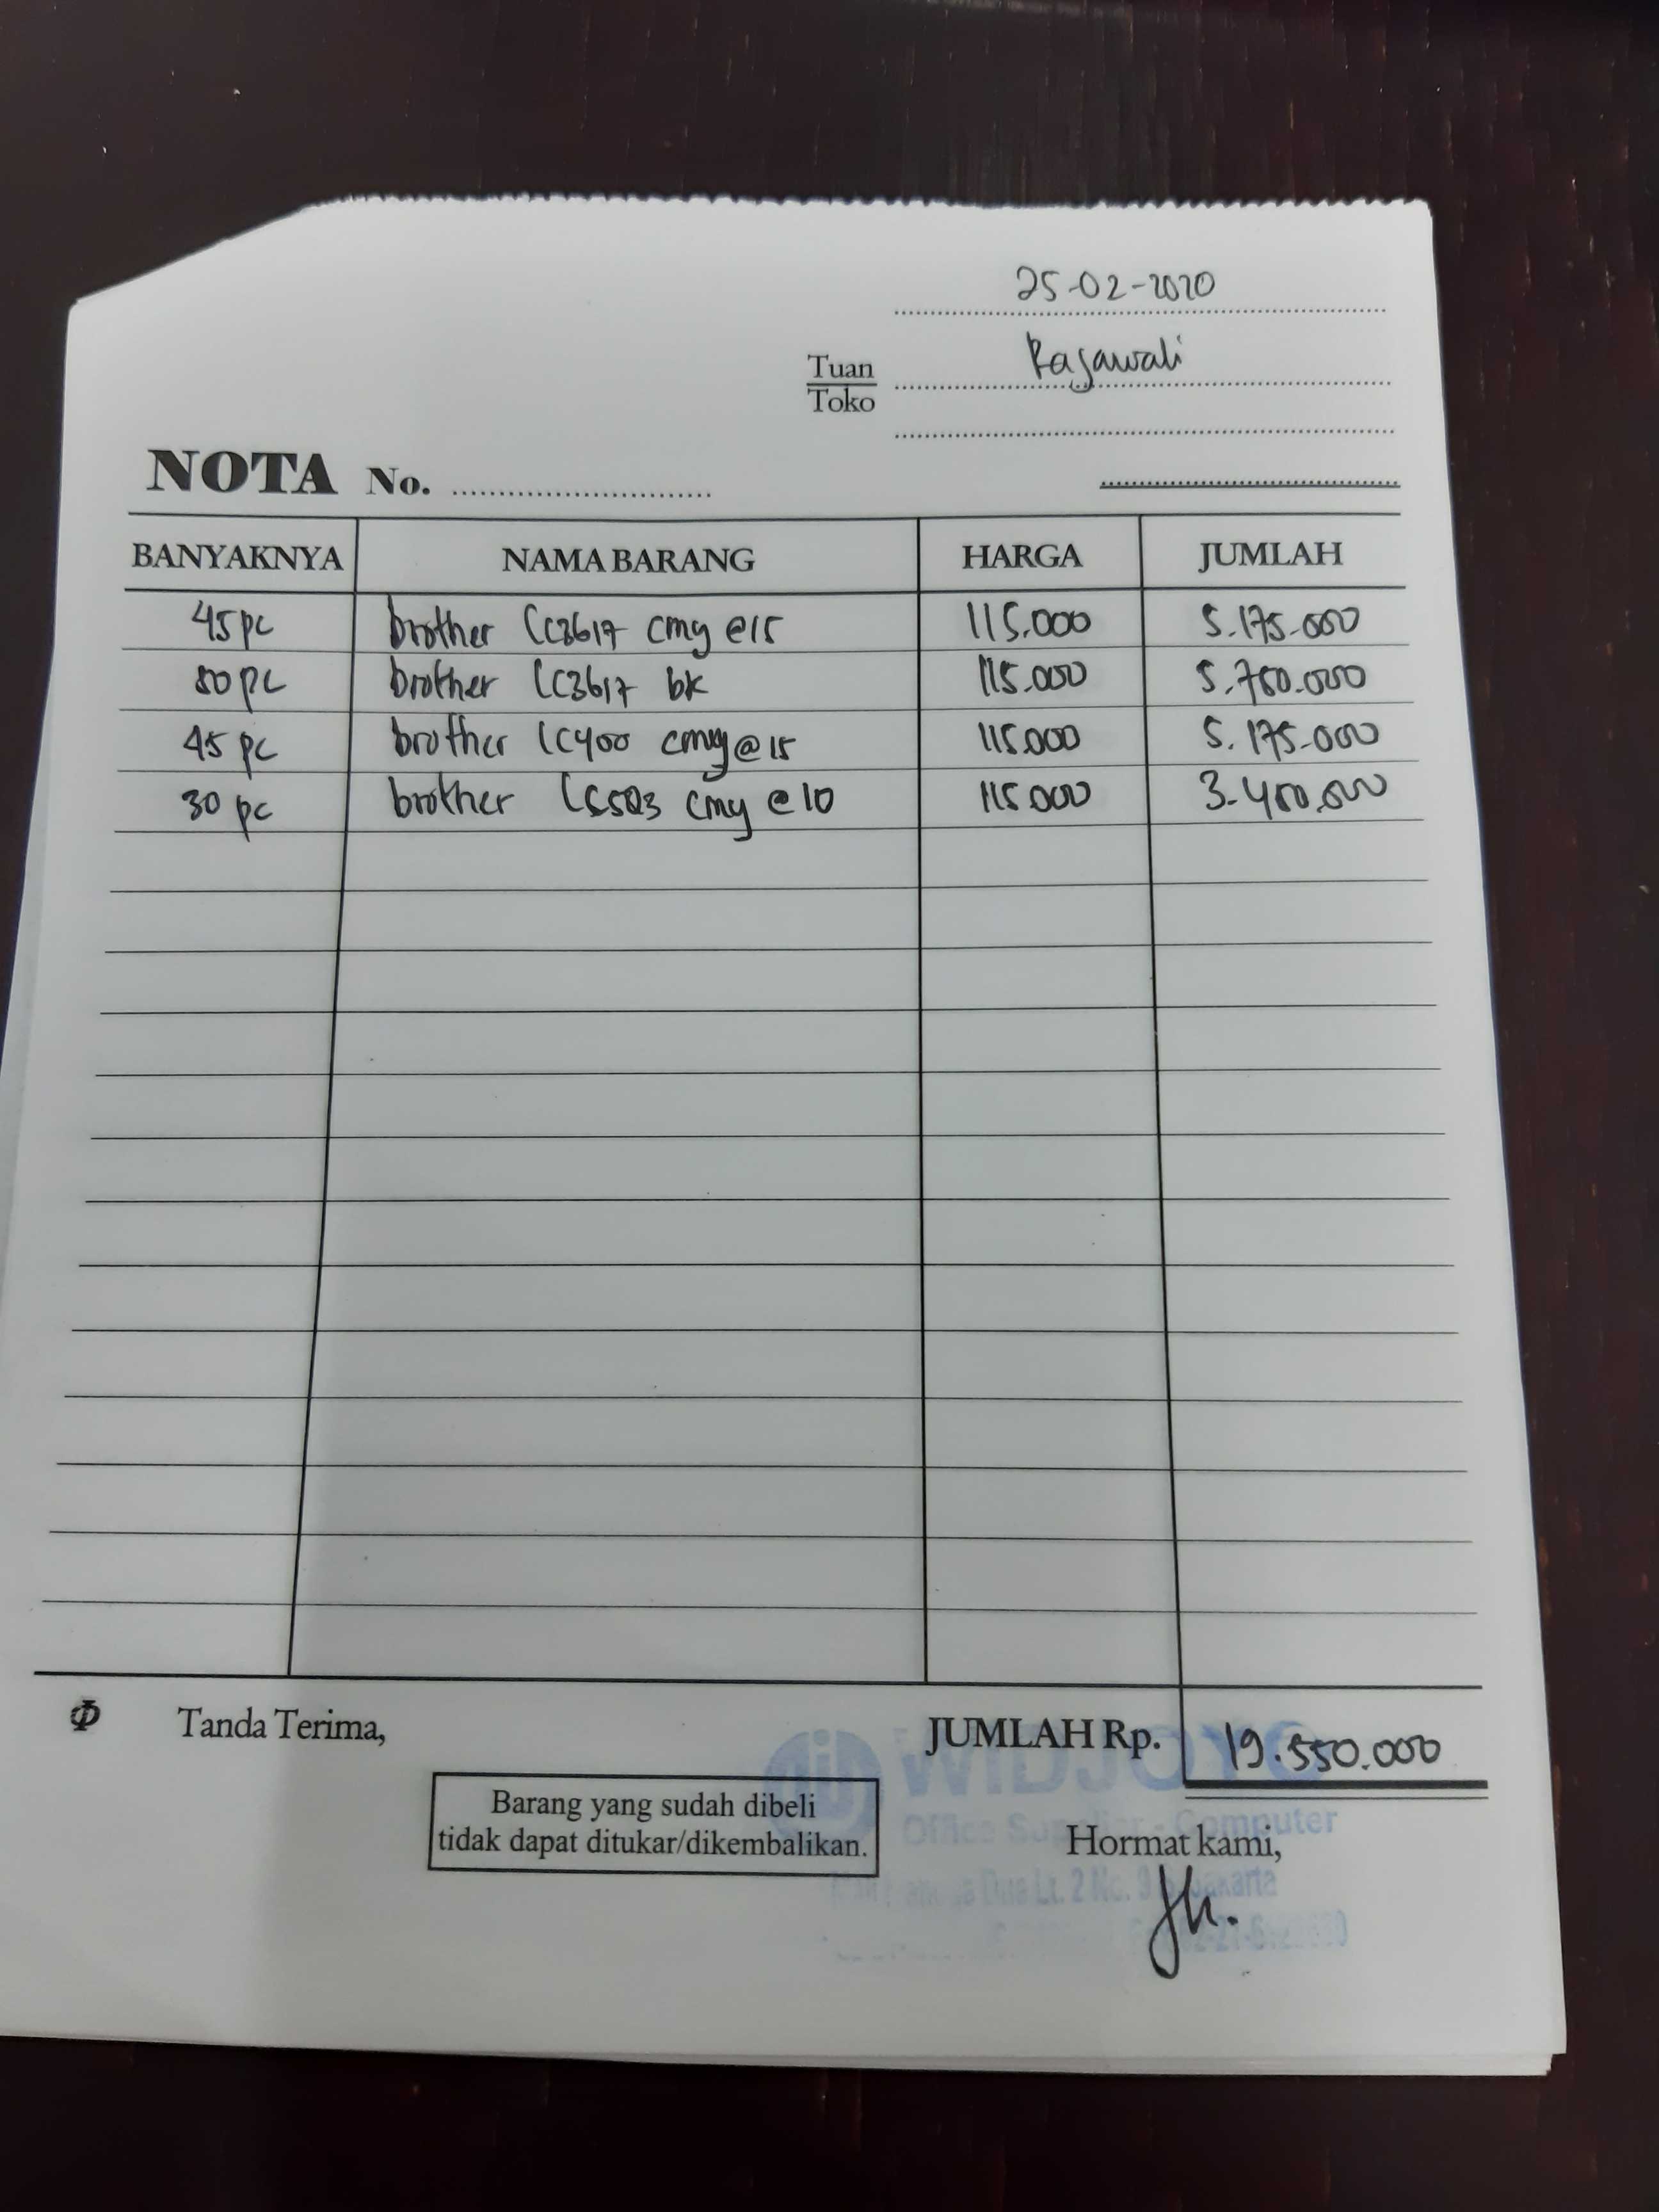 25-02-2020
Tuan
Toko
Rajawali
NOTA No.
BANYAKNYA NAMA BARANG HARGA JUMLAH
45 pc brother LC3617 cmy @15 115.000 5.175.000
50 pc brother LC3617 bk 115.000 5.750.000
45 pc brother LC400 cmy @ 15 115.000 5.175.000
30 pc brother cmy @ 10 115.000 3.450.000
Φ Tanda Terima, JUMLAH Rp. 19.550.000
WIDJOYO
Barang yang sudah dibeli
tidak dapat ditukar/dikembalikan.
Office Computer
Hormat kami,
Dua Lt. 2 No. Jakarta